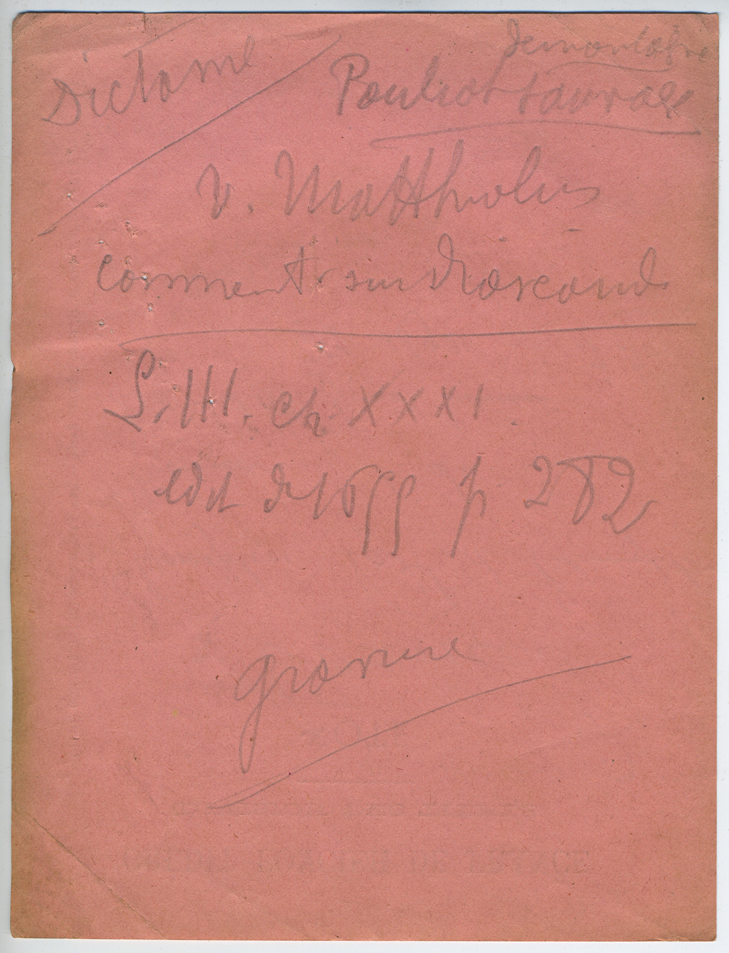 Dictame
Pouliot sauvage
v. Matthiolus
comment. sur Dioscoride
L. III. ch XXXI
edit de 1655 p 282
gravure